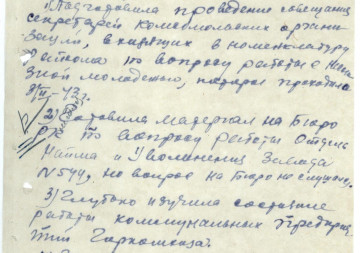 1) Подготовила проведение совещания
секретарей комсомольских органи
заций, входящих в номенклатуру
райкома по вопросу работы с
молодежью, которое проходило
2) Готовила материал на Бюро
РК по вопросу работы Отдела
Найма и Увольнения Завода
N 544, но вопрос на Бюро не слушали.
3) Глубоко изучила состояние
работы коммунальных предприя
тий Горкомхоза.